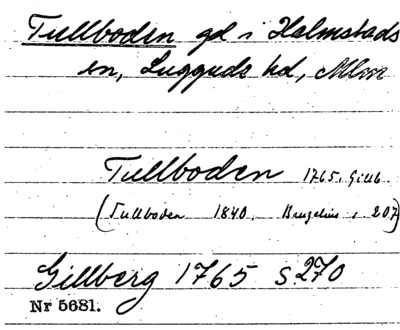 Tullboden gd i Halmstads
sn, Luggude hd, Mlm
Tullboden 1765. Gillb.
(Tullboden 1840. Bruzelius s 207)
Gillberg 1765 s 270
Nr 5681.